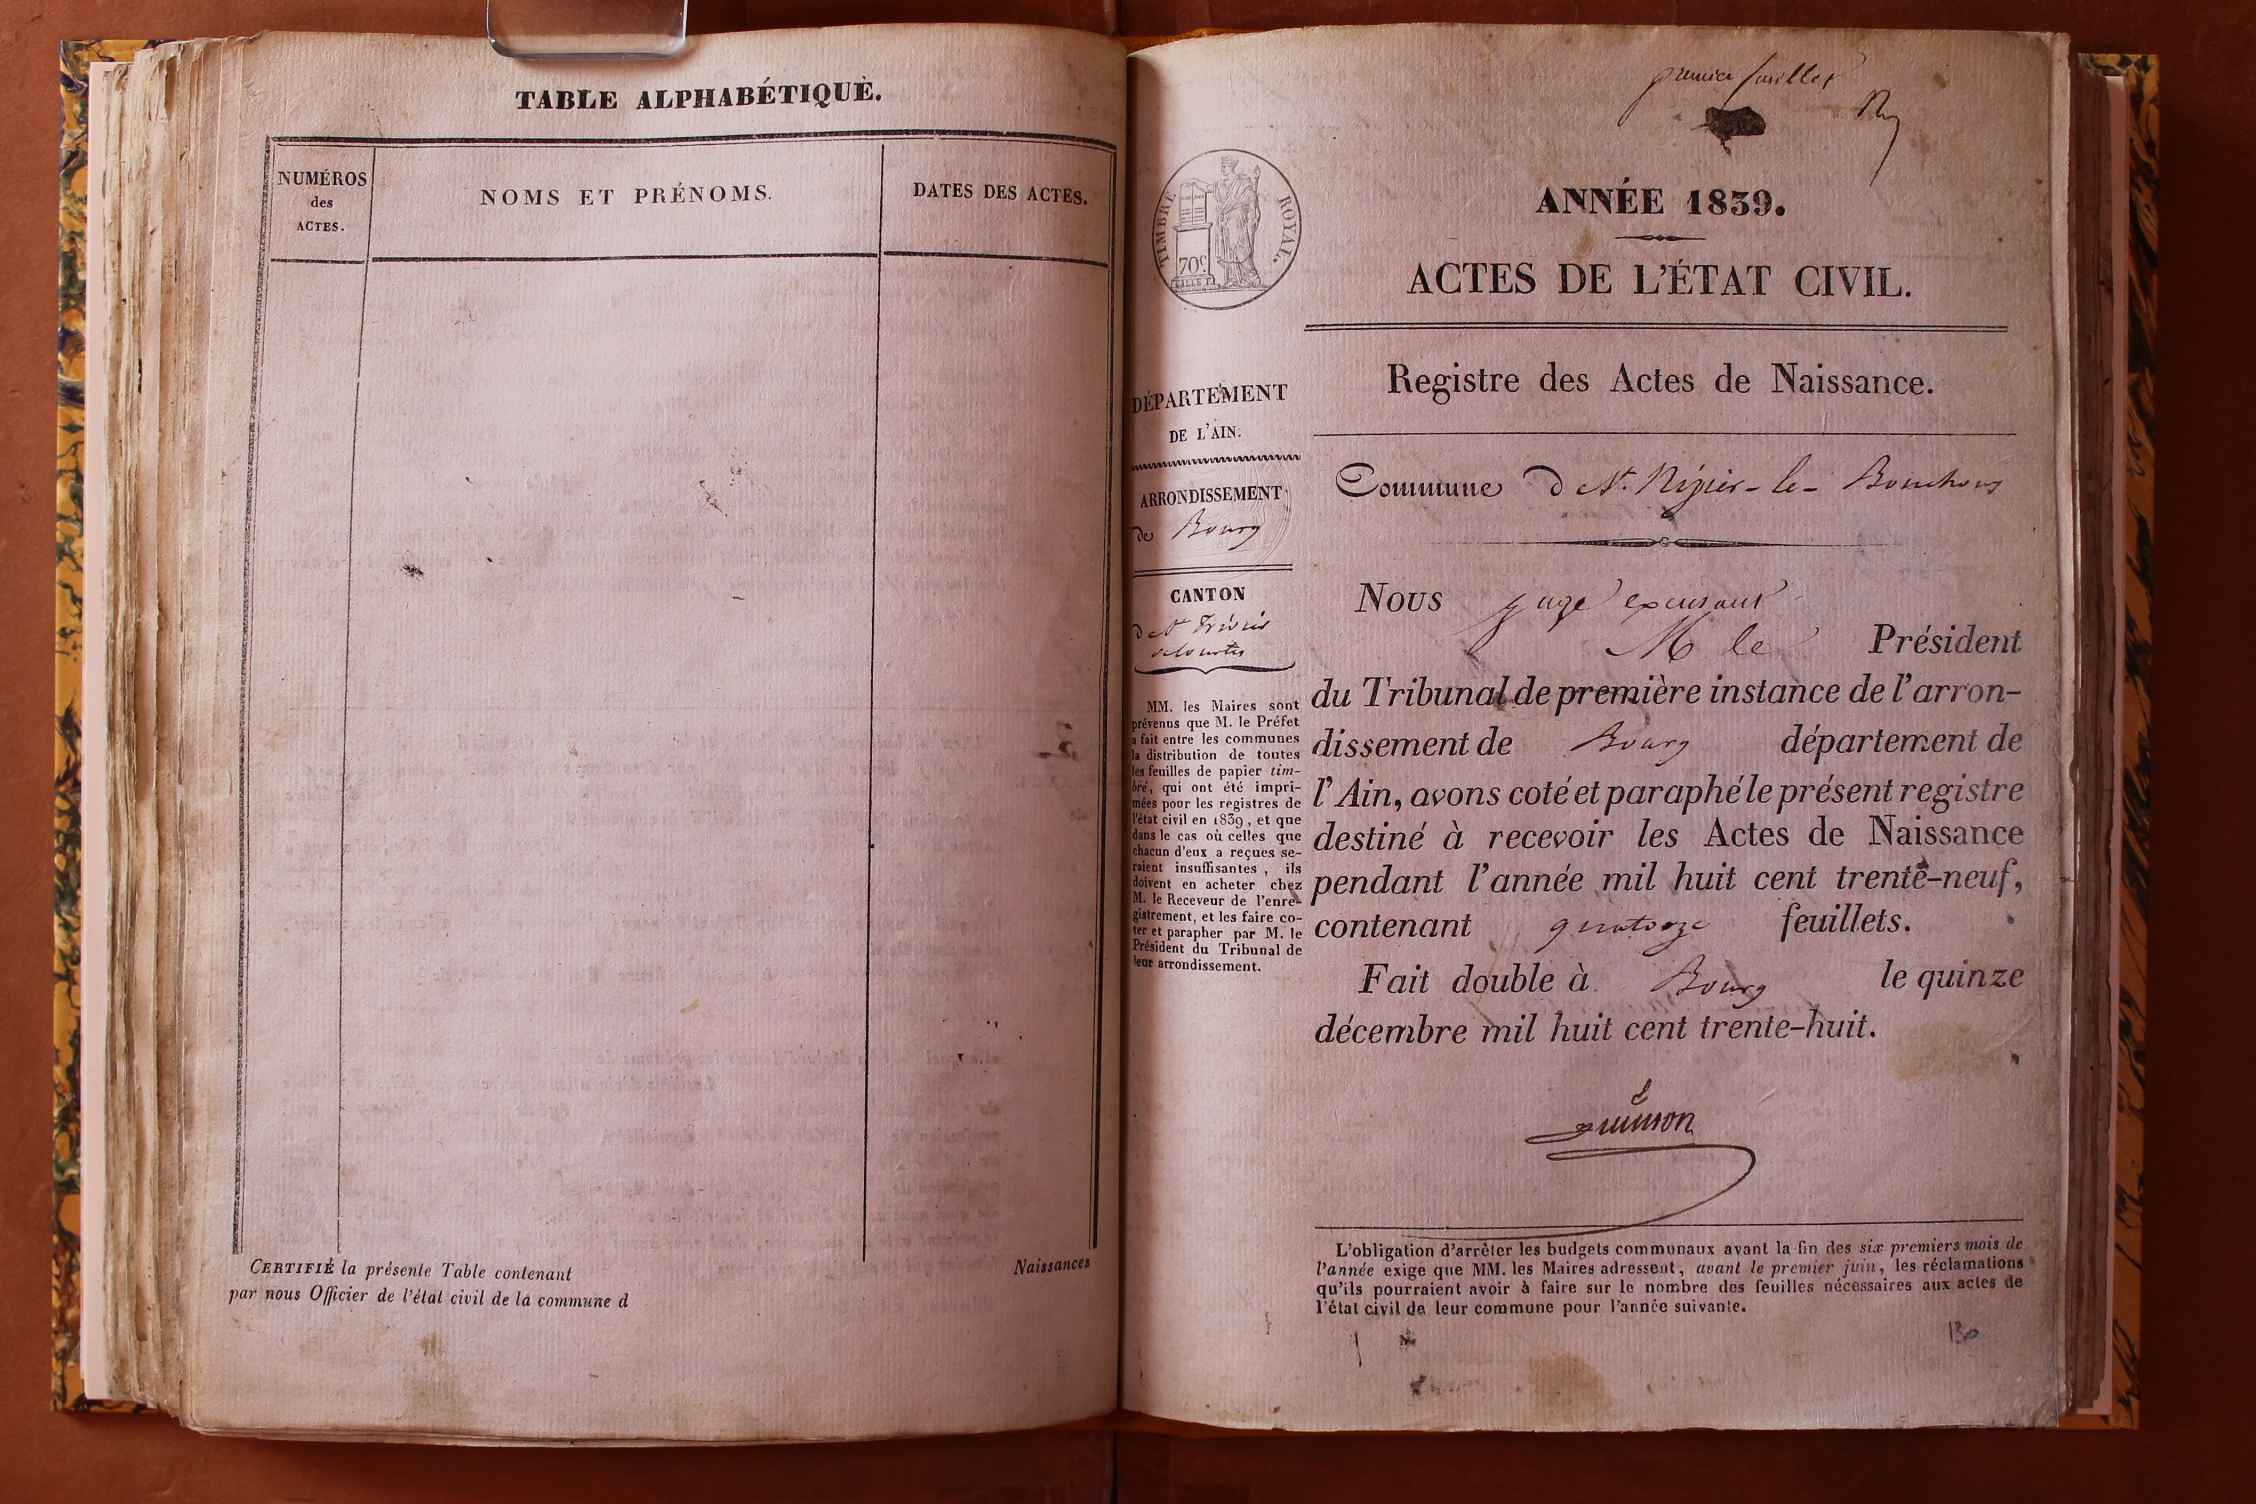 TABLE ALPHABÉTIQUE.
NUMÉROS
des
ACTES.
NOMS ET PRÉNOMS.
DATES DES ACTES.
CERTIFIÉ la présente Table contenant
Naissances
par nous Officier de l'état civil de la commune d
premier feuillet
TIMBRE ROYAL.
70c
DÉPARTEMENT
DE L'AIN.
ARRONDISSEMENT
de Bourg
CANTON
d St Trivier
de Courtes
MM. les Maires sont
prévenus que M. le Préfet
a fait entre les communes
la distribution de toutes
les feuilles de papier tim-
bré, qui ont été impri-
mées pour les registres de
l'état civil en 1839, et que
dans le cas où celles que
chacun d'eux a reçues se-
raient insuffisantes, ils
doivent en acheter chez
M. le Receveur de l'enre-
gistrement, et les faire co-
ter et parapher par M. le
Président du Tribunal de
leur arrondissement.
ANNÉE 1839.
ACTES DE L'ÉTAT CIVIL.
Registre des Actes de Naissance.
Commune d St. Nizier-le-Bouchoux
Nous juge excusant
M le Président
du Tribunal de première instance de l'arron-
dissement de Bourg département de
l'Ain, avons coté et paraphé le présent registre
destiné à recevoir les Actes de Naissance
pendant l'année mil huit cent trente-neuf,
contenant quatorze feuillets.
Fait double à Bourg le quinze
décembre mil huit cent trente-huit.
L'obligation d'arrêter les budgets communaux avant la fin des six premiers mois de
l'année exige que MM. les Maires adressent, avant le premier juin, les réclamations
qu'ils pourraient avoir à faire sur le nombre des feuilles nécessaires aux actes de
l'état civil de leur commune pour l'année suivante.
130